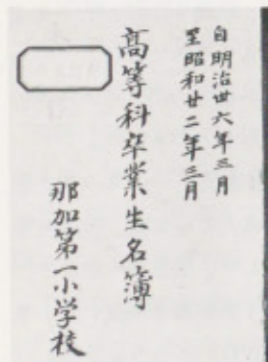 自明治卅六年三月
至昭和廿二年三月
高等科卒業生名簿
那加第一小学校